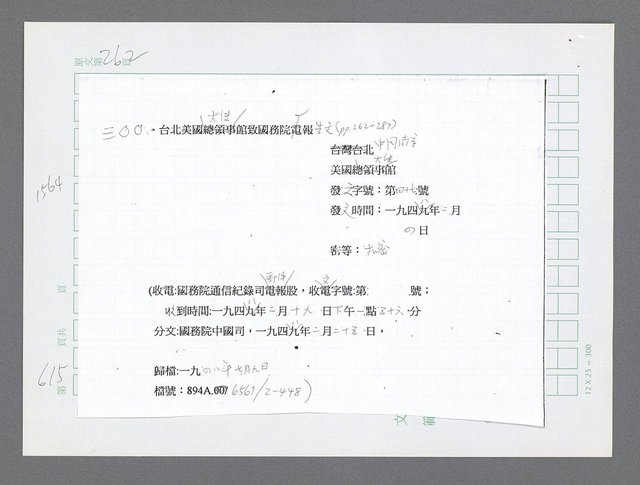 原文第262頁
三〇〇、台北美國總領事館致國務院電報 (pp.262-287)
大使
台灣台北 中國南京
美國總領事館
大使
發文字號：第四十七號
發文時間：一九四九年二月
日
密等：
(收電:國務院通信紀錄司電報股，收電字號:第 號；
郵件 文
收到時間:一九四九年二月十九日下午一點五十六分
分文:國務院中國司，一九四九年二月二十五日，
歸檔:一九 年七月九日
檔號：894A.00/6567/2-448)
1564
頁
頁共
615
第
12 X 25 = 300